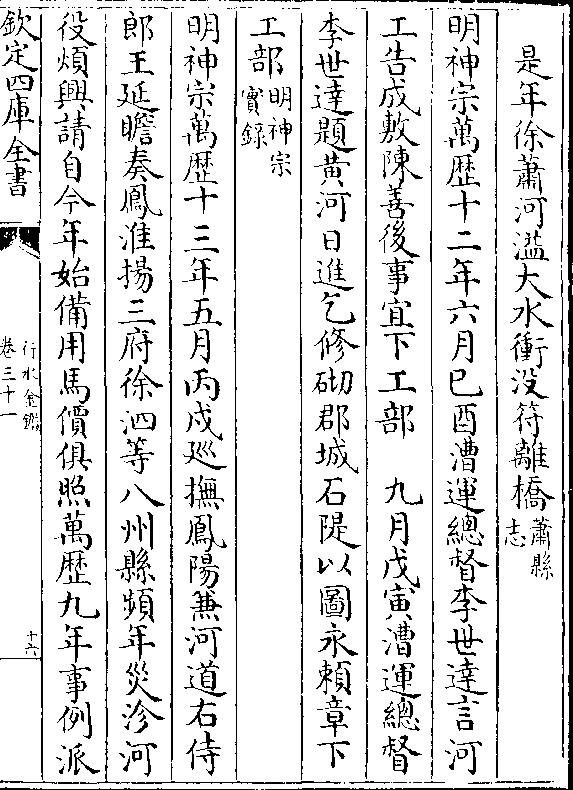 是年徐蕭河溢大水衝没符離橋蕭縣
志
明神宗萬歴十二年六月己酉漕運總督李世達言河
工告成敷陳善後事宜下工部　九月戊寅漕運總督
李世達題黄河日進乞修砌郡城石隄以圖永賴章下
工部明神宗
實録
明神宗萬歴十三年五月丙戌廵撫鳳陽兼河道右侍
郎王廷瞻奏鳳淮揚三府徐泗等八州縣頻年災沴河
役煩興請自今年始備用馬價俱照萬歴九年事例派
欽定四庫全書
行水金鑑
卷三十一
十六